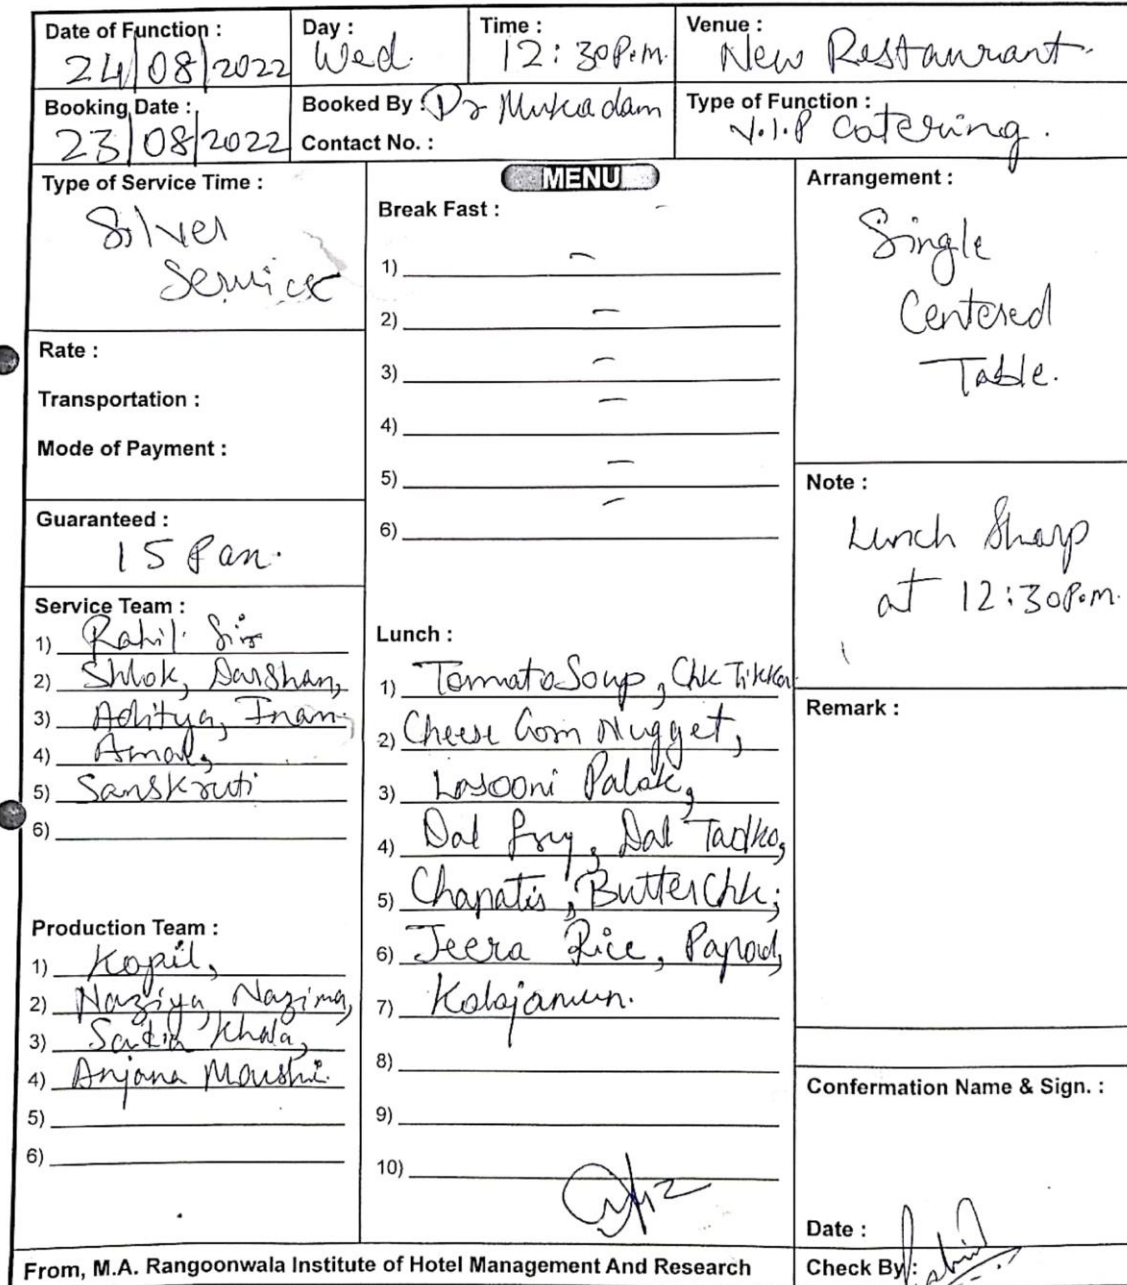 Date of Function :
24/08/2022
Day :
Wed.
Time :
12:30P.m.
Venue :
New Restaurant.
Booking Date :
23/08/2022
Booked By : Dr Mukadam
Contact No. :
Type of Function :
V.I.P Catering.
Type of Service Time :
Silver
Service
Rate :
Transportation :
Mode of Payment :
Guaranteed :
15 Pax.
Service Team :
1) Rahil Sir
2) Shlok, Darshan,
3) Aditya, Inam
4) Amol,
5) Sanskruti
6)
Production Team :
1) Kapil,
2) Naziya, Nazima,
3) Khala,
4) Anjana Moushi.
5)
6)
MENU
Break Fast : -
1) -
2) -
3) -
4) -
5) -
6) -
Lunch :
1) Tomato Soup, Chk Tikka
2) Cheese Corn Nugget,
3) Lasooni Palak,
4) Dal fry, Dal Tadka,
5) Chapatis, Butter Chk,
6) Jeera Rice, Papad,
7) Kalajamun.
8)
9)
10)
Arrangement :
Single
Centered
Table.
Note :
Lunch Sharp
at 12:30P.m.
Remark :
Confermation Name & Sign. :
Date :
Check By :
From, M.A. Rangoonwala Institute of Hotel Management And Research